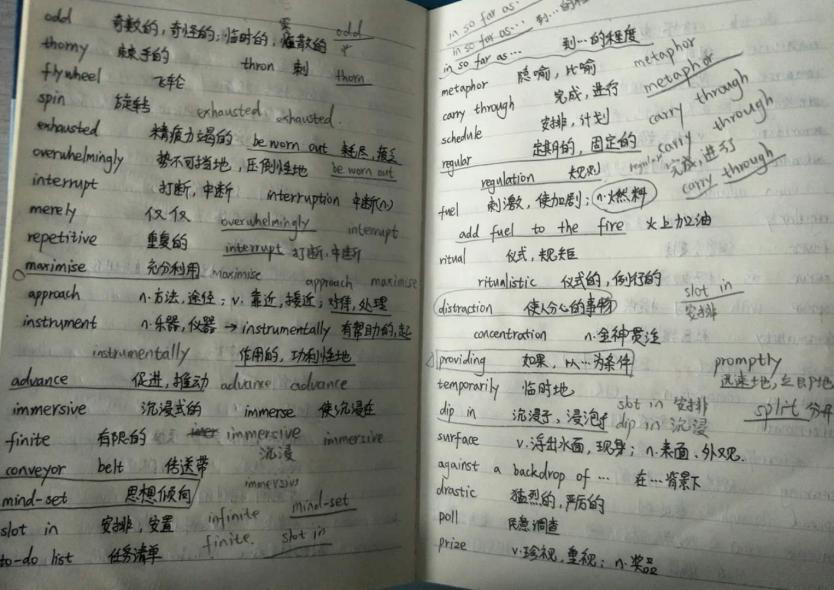 零
odd 奇数的，奇怪的；临时的，散的 odd
thorny 棘手的 thron 刺 thorn
flywheel 飞轮
spin 旋转 exhausted exhausted.
exhausted 精疲力竭的 be worn out 耗尽，疲乏
overwhelmingly 势不可挡地，压倒性地 be worn out
interrupt 打断，中断 interruption 中断(n)
merely 仅仅 overwhelmingly interrupt
repetitive 重复的 interrupt 打断，中断
maximise 充分利用 maximise approach maximise
approach n.方法，途径；v.靠近，接近；对待，处理
instrument n.乐器，仪器 → instrumentally 有帮助的，起
instrumentally 作用的，功利性地
advance 促进，推动 advance advance
immersive 沉浸式的 immerse 使沉浸在
finite 有限的 immersive immersive
沉浸
conveyor belt 传送带
immersive
mind-set 思想倾向 mind-set
slot in 安排，安置 infinite
to-do list 任务清单 finite. slot in
in so far as.
in so far as... 到…的程
in so far as... 到…的程度
metaphor 隐喻，比喻 metaphor
metaphor
carry through 完成，进行 carry through
schedule 安排，计划
regular 定期的，固定的 regular carry through
regulation 规则 完成，进行
carry through
fuel 刺激，使加剧；n.燃料
add fuel to the fire 火上加油
ritual 仪式，规矩
ritualistic 仪式的，例行的
slot in
distraction 使人分心的事物 安排
concentration n.全神贯注
providing 如果，以…为条件 promptly
temporarily 临时地 迅速地，立即地
slot in 安排 split 分开
dip in 沉浸于，浸泡于 dip in 沉浸
surface v.浮出水面，现身；n.表面、外观
against a backdrop of … 在…背景下
drastic 猛烈的，严厉的
poll 民意调查
prize v.珍视，重视；n.奖品